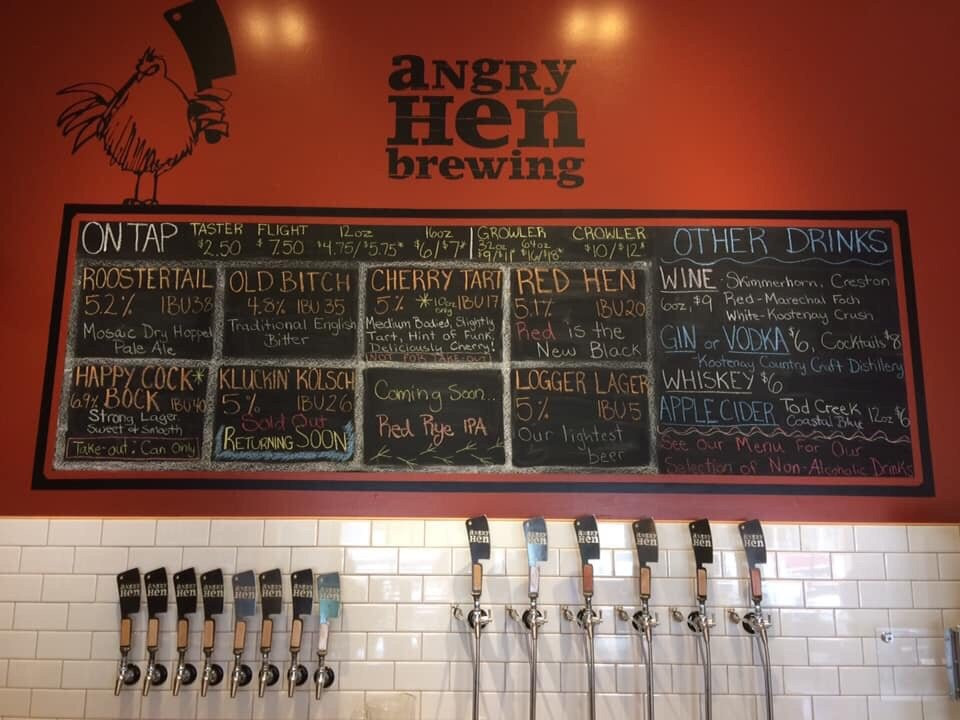 aNgRy
Hen
brewing
ON TAP TASTER FLIGHT 12oz 16oz GROWLER CROWLER
$2.50 $7.50 $4.75/5.75* $6/$7* 32oz 64oz $10/$12*
OTHER DRINKS
ROOSTERTAIL
5.2% IBU 38
Mosaic Dry Hopped
Pale Ale
OLD BITCH
4.8% IBU 35
Traditional English
Bitter
CHERRY TART
5% *10oz only IBU 17
Medium Bodied, Slightly
Tart, Hint of Funk,
Deliciously Cherry!
NOT FOR TAKE-OUT
RED HEN
5.1% IBU20
Red is the
New Black
HAPPY COCK*
BOCK
6.9% IBU 40
Strong Lager
Sweet & Smooth
Take-out: Can Only
KLUCKIN' KÖLSCH
5% IBU26
Sold Out
RETURNING SOON
Coming Soon...
Red Rye IPA
LOGGER LAGER
5% IBU5
Our lightest
beer
WINE - Skimmerhorn, Creston
6oz, $9 Red - Marechal Foch
White - Kootenay Crush
GIN or VODKA $6, Cocktails $8
- Kootenay Country Craft Distillery
WHISKEY $6
APPLE CIDER Tod Creek 12oz $6
Coastal Blue
See Our Menu For Our
Selection of Non-Alcoholic Drinks
ANGRY
Hen
ANGRY
Hen
ANGRY
Hen
ANGRY
Hen
ANGRY
Hen
ANGRY
Hen
ANGRY
Hen
ANGRY
Hen
ANGRY
Hen
ANGRY
Hen
ANGRY
Hen
ANGRY
Hen
ANGRY
Hen
ANGRY
Hen